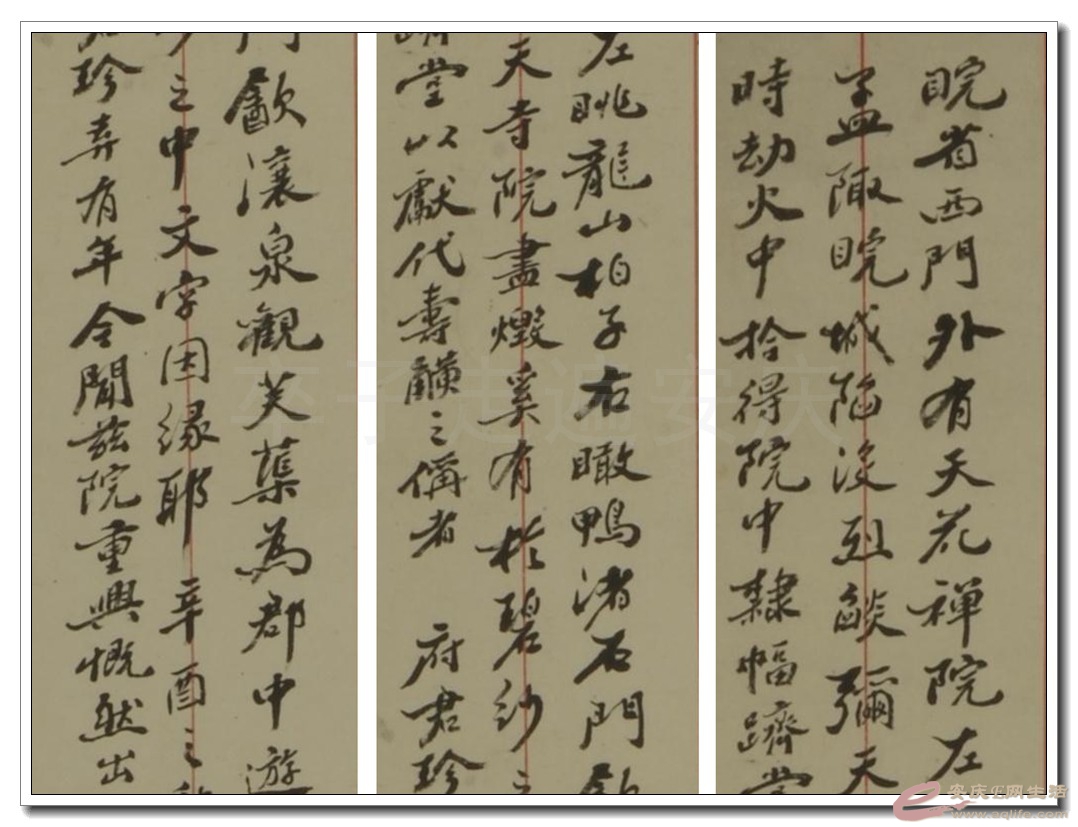 睆省西門外有天花禪院左
孟陬睆城陷沒烈燄彌天
時劫火中拾得院中隸幅躋堂
左眺龍山柏子右瞰鴨渚石門
天寺院盡燬奚有於碧紗之
躋堂以獻代壽之偁者 府君珍
門瀼泉觀芙蕖為郡中遊
之中文字因緣耶辛酉之
君珍弆有年今聞茲院重興慨然出
卒子走遍安庆
安庆E网生活
www.aqlife.com